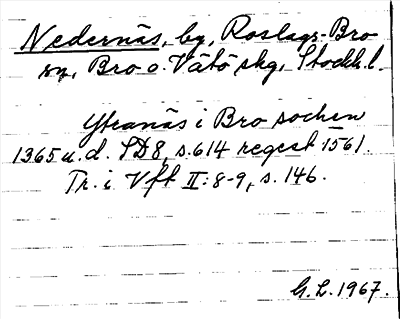 Nedernäs, by, Roslags-Bro
sn, Bro o. Vätö skg, Stockh.l.
Ytranäs i Bro socken
1365 u.d. SD8, s.614 regest 1561.
Tr. i Vft II:8-9, s.146.
G.L.1967.